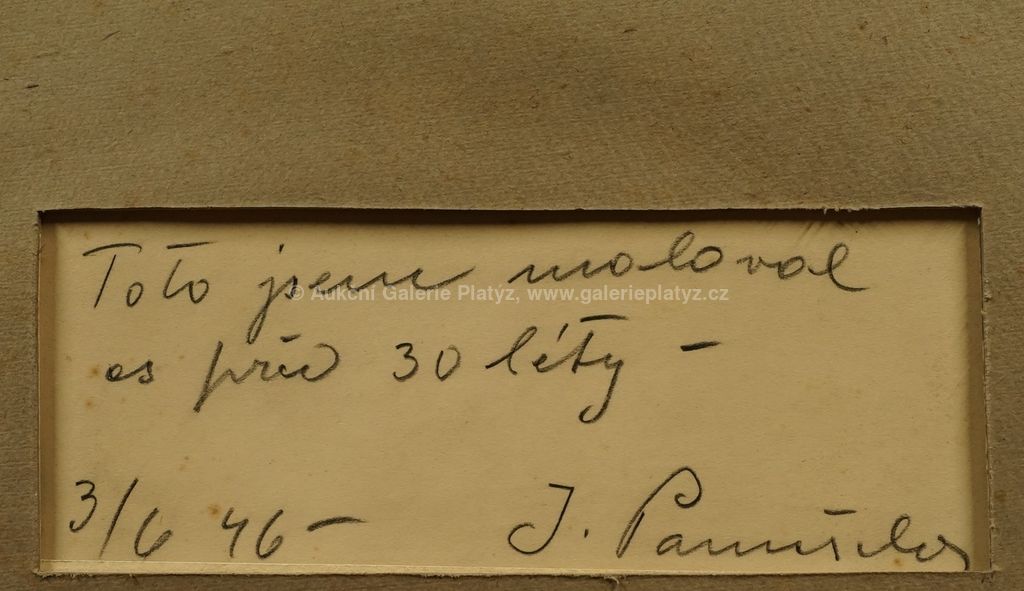 Toto jsem maloval
as před 30 léty –
© Aukční Galerie Platýz, www.galerieplatyz.cz
3/6 46 – J. Panuška